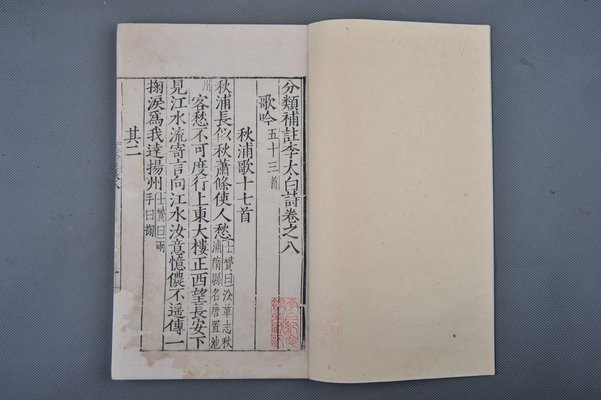 分類補註李太白詩卷之八
歌吟五十三首
秋浦歌十七首
秋浦長似秋蕭條使人愁士贇曰汝革志秋浦隋縣名唐置池州
客愁不可度行上東大樓正西望長安下
見江水流寄言向江水汝意憶儂不遥傳一
掬淚爲我達揚州士贇曰兩手曰掬
其二